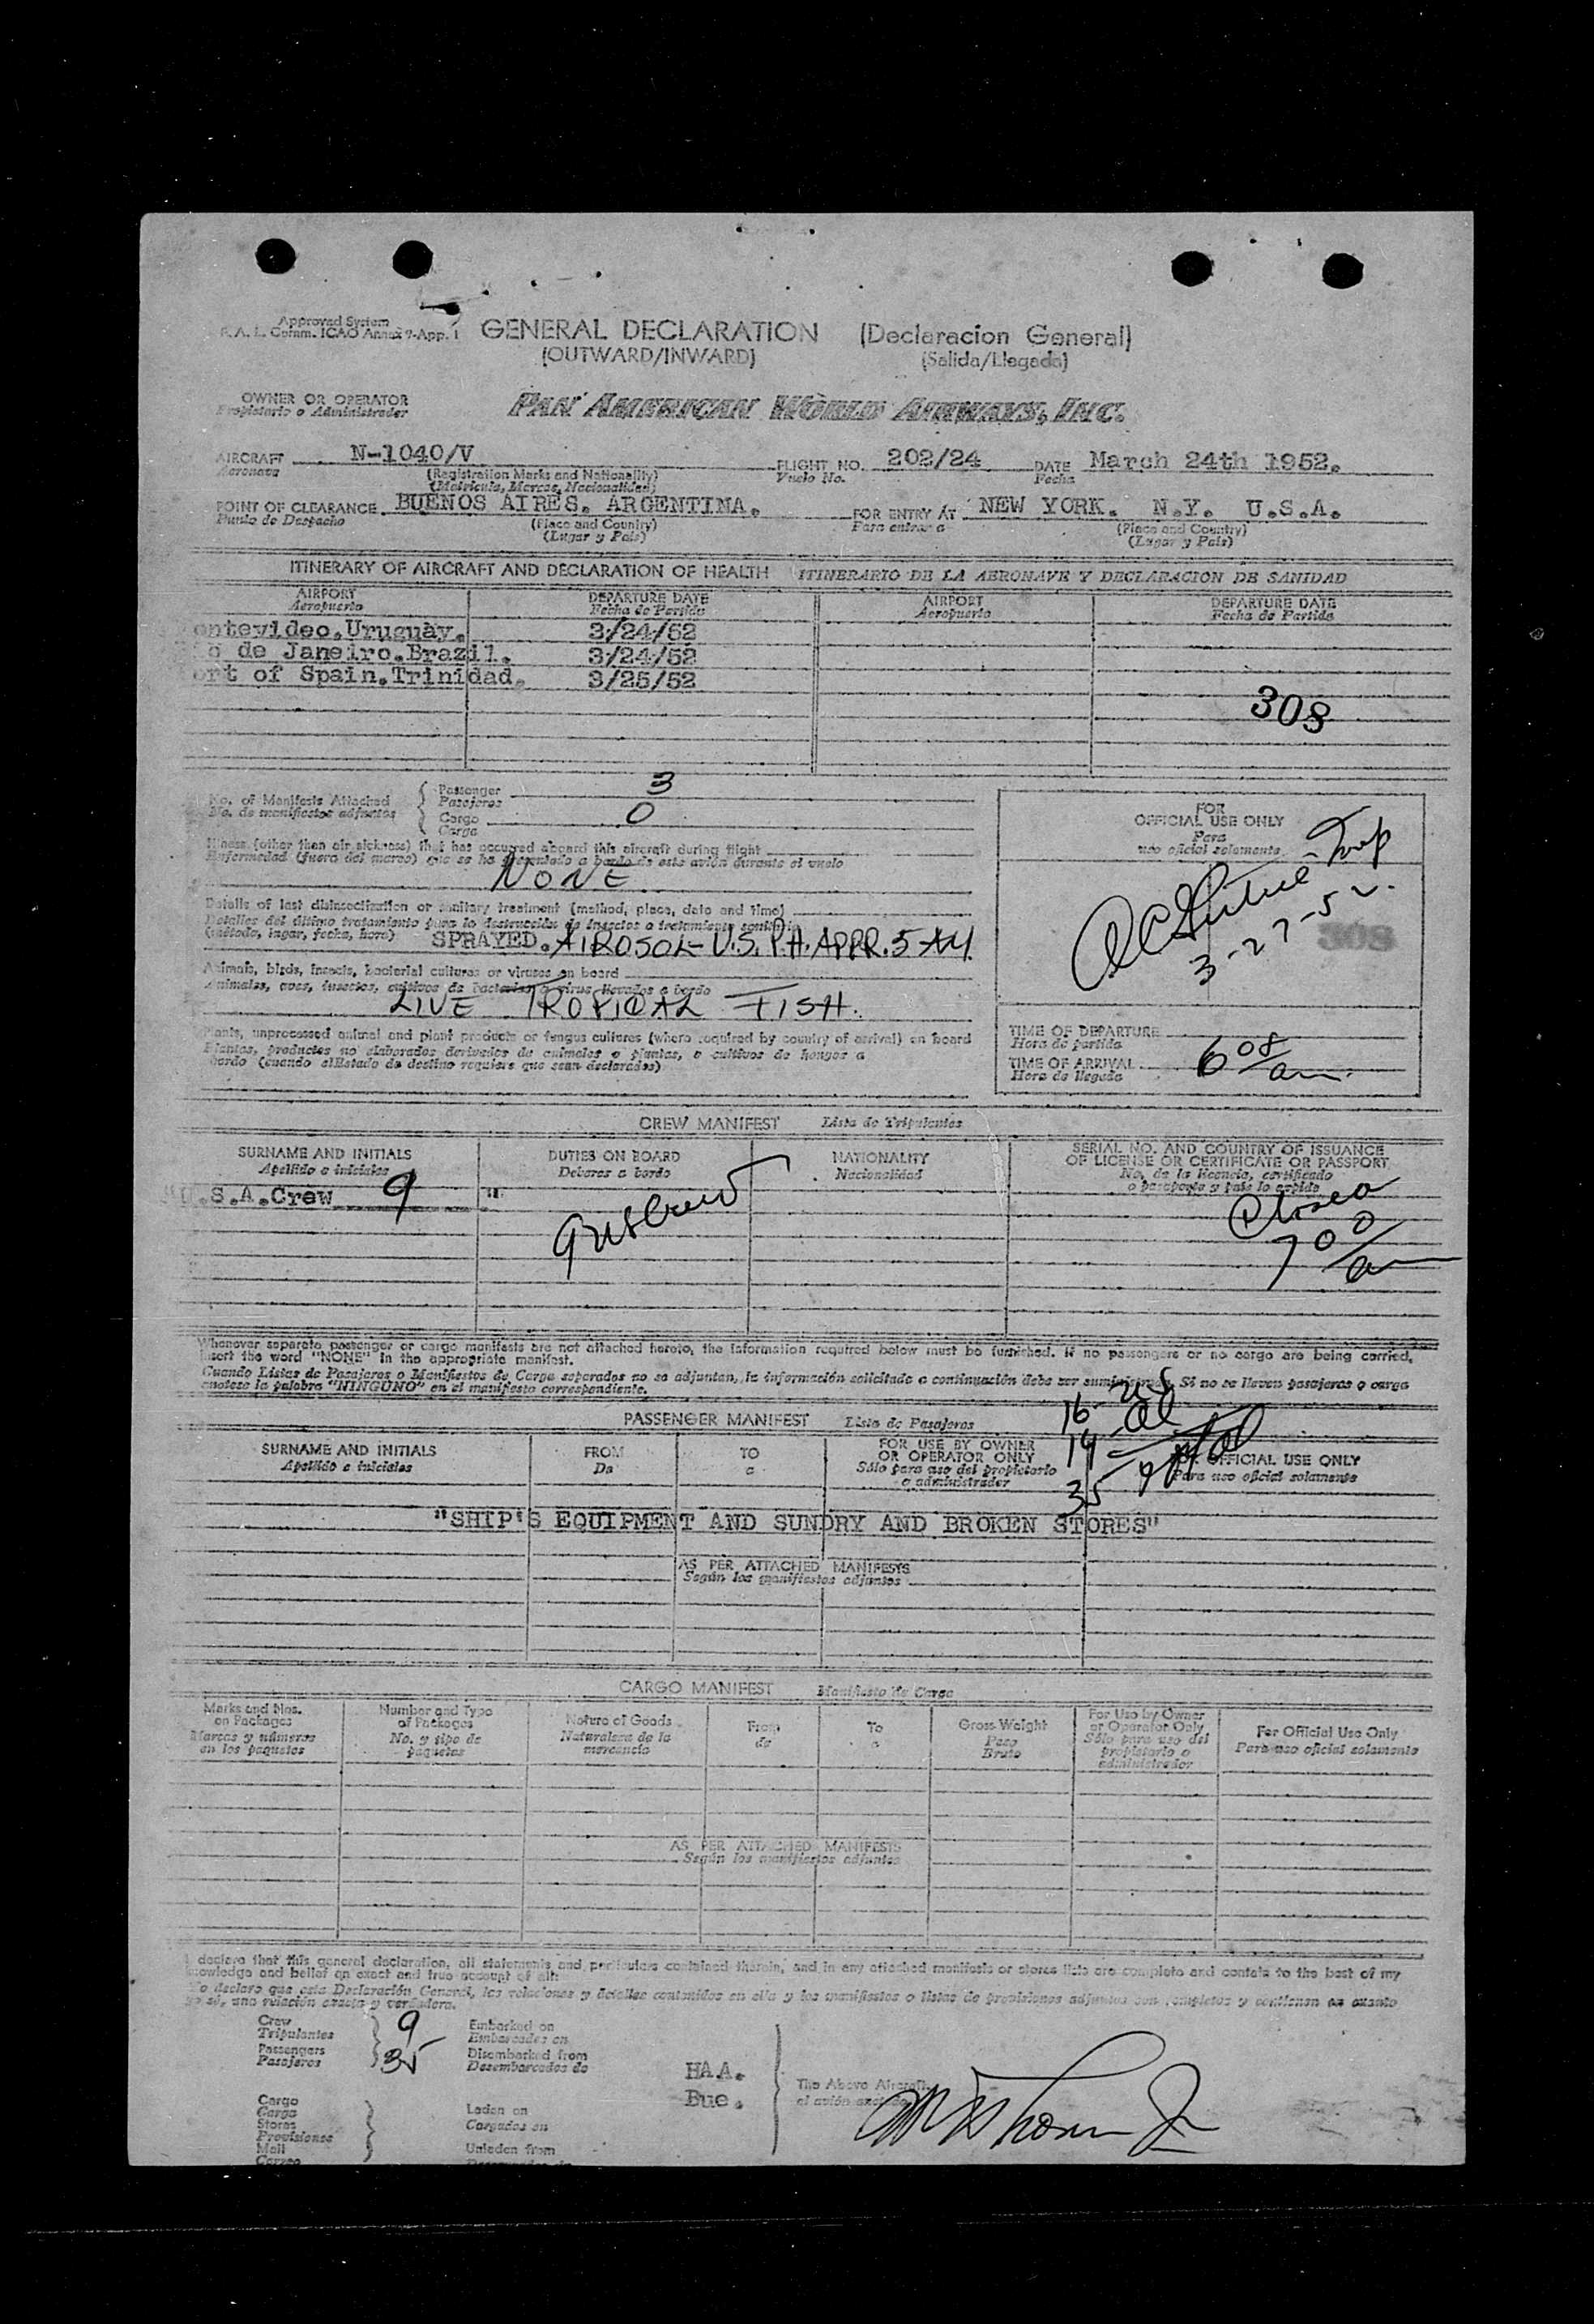 Approved System
F. A. L. Comm. ICAO Annex 9-App. 1
GENERAL DECLARATION (Declaracion General)
(OUTWARD/INWARD) (Salida/Llegada)
OWNER OR OPERATOR
Propietario o Administrador
PAN AMERICAN WORLD AIRWAYS, INC.
AIRCRAFT N-1040/V FLIGHT NO. 202/24 DATE March 24th 1952.
Aeronave (Registration Marks and Nationality) Vuelo No. Fecha
(Matricula, Marcas, Nacionalidad)
POINT OF CLEARANCE BUENOS AIRES. ARGENTINA. FOR ENTRY AT NEW YORK. N.Y. U.S.A.
Punto de Despacho (Place and Country) Para entrar a (Place and Country)
(Lugar y País) (Lugar y País)
ITINERARY OF AIRCRAFT AND DECLARATION OF HEALTH ITINERARIO DE LA AERONAVE Y DECLARACION DE SANIDAD
AIRPORT DEPARTURE DATE AIRPORT DEPARTURE DATE
Aeropuerto Fecha de Partida Aeropuerto Fecha de Partida
ontevideo.Uruguay. 3/24/52
o de Janeiro.Brazil. 3/24/52
ort of Spain.Trinidad. 3/25/52
308
No. of Manifests Attached
No. de manifiestos adjuntos
Passenger 3
Pasajeros
Cargo 0
Carga
Illness (other than air sickness) that has occurred aboard this aircraft during flight
Enfermedad (fuera del mareo) que se ha presentado a bordo de este avión durante el vuelo
NONE
Details of last disinsectization or sanitary treatment (method, place, date and time)
Detalles del último tratamiento para la destrucción de insectos o tratamiento sanitario
(método, lugar, fecha, hora) SPRAYED. AIROSOL-U.S.P.H. APPR. 5 AM.
Animals, birds, insects, bacterial cultures or viruses on board
Animales, aves, insectos, cultivos de bacterias o virus llevados a bordo
LIVE TROPICAL FISH.
Plants, unprocessed animal and plant products or fungus cultures (where required by country of arrival) on board
Plantas, productos no elaborados derivados de animales o plantas, o cultivos de hongos a
bordo (cuando el Estado de destino requiere que sean declarados)
FOR
OFFICIAL USE ONLY
Para
uso oficial solamente
3-27-52.
308
TIME OF DEPARTURE
Hora de partida
TIME OF ARRIVAL 6 08 am.
Hora de llegada
CREW MANIFEST Lista de Tripulantes
SURNAME AND INITIALS DUTIES ON BOARD NATIONALITY SERIAL NO. AND COUNTRY OF ISSUANCE
Apellido e iniciales Deberes a bordo Nacionalidad OF LICENSE OR CERTIFICATE OR PASSPORT
No. de la licencia, certificado
o pasaporte y país lo expide
"U.S.A.Crew 9 "
9 US Crew
Closed
7 00 am
Whenever separate passenger or cargo manifests are not attached hereto, the information required below must be furnished. If no passengers or no cargo are being carried,
insert the word "NONE" in the appropriate manifest.
Cuando Listas de Pasajeros o Manifiestos de Carga separados no se adjuntan, la información solicitada a continuación debe ser suministrada. Si no se llevan pasajeros o carga
anótese la palabra "NINGUNO" en el manifiesto correspondiente.
16 - US
19 - Al
35
PASSENGER MANIFEST Lista de Pasajeros
SURNAME AND INITIALS FROM TO FOR USE BY OWNER OFFICIAL USE ONLY
Apellido e iniciales De a OR OPERATOR ONLY Para uso oficial solamente
Sólo para uso del propietario
o administrador
"SHIP'S EQUIPMENT AND SUNDRY AND BROKEN STORES"
AS PER ATTACHED MANIFESTS
Según los manifiestos adjuntos
CARGO MANIFEST Manifiesto de Carga
Marks and Nos. on Packages
Marcas y números en los paquetes
Number and Type of Packages
No. y tipo de paquetes
Nature of Goods
Naturaleza de la mercancía
From
de
To
a
Gross Weight
Peso Bruto
For Use by Owner or Operator Only
Sólo para uso del propietario o administrador
For Official Use Only
Para uso oficial solamente
AS PER ATTACHED MANIFESTS
Según los manifiestos adjuntos
I declare that this general declaration, all statements and particulars contained therein, and in any attached manifests or stores lists are complete and contain to the best of my
knowledge and belief an exact and true account of all:
Yo declaro que esta Declaración General, las relaciones y detalles contenidos en ella y los manifiestos o listas de provisiones adjuntos son completos y contienen en cuanto
yo sé, una relación exacta y verdadera.
Crew 9 Embarked on
Tripulantes Embarcados en
Passengers 35 Disembarked from
Pasajeros Desembarcados de
HA.A.
Bue.
The Above Aircraft
el avión
Cargo
Carga
Laden on
Stores
Cargados en
Provisiones
Mail
Unladen from
Correo